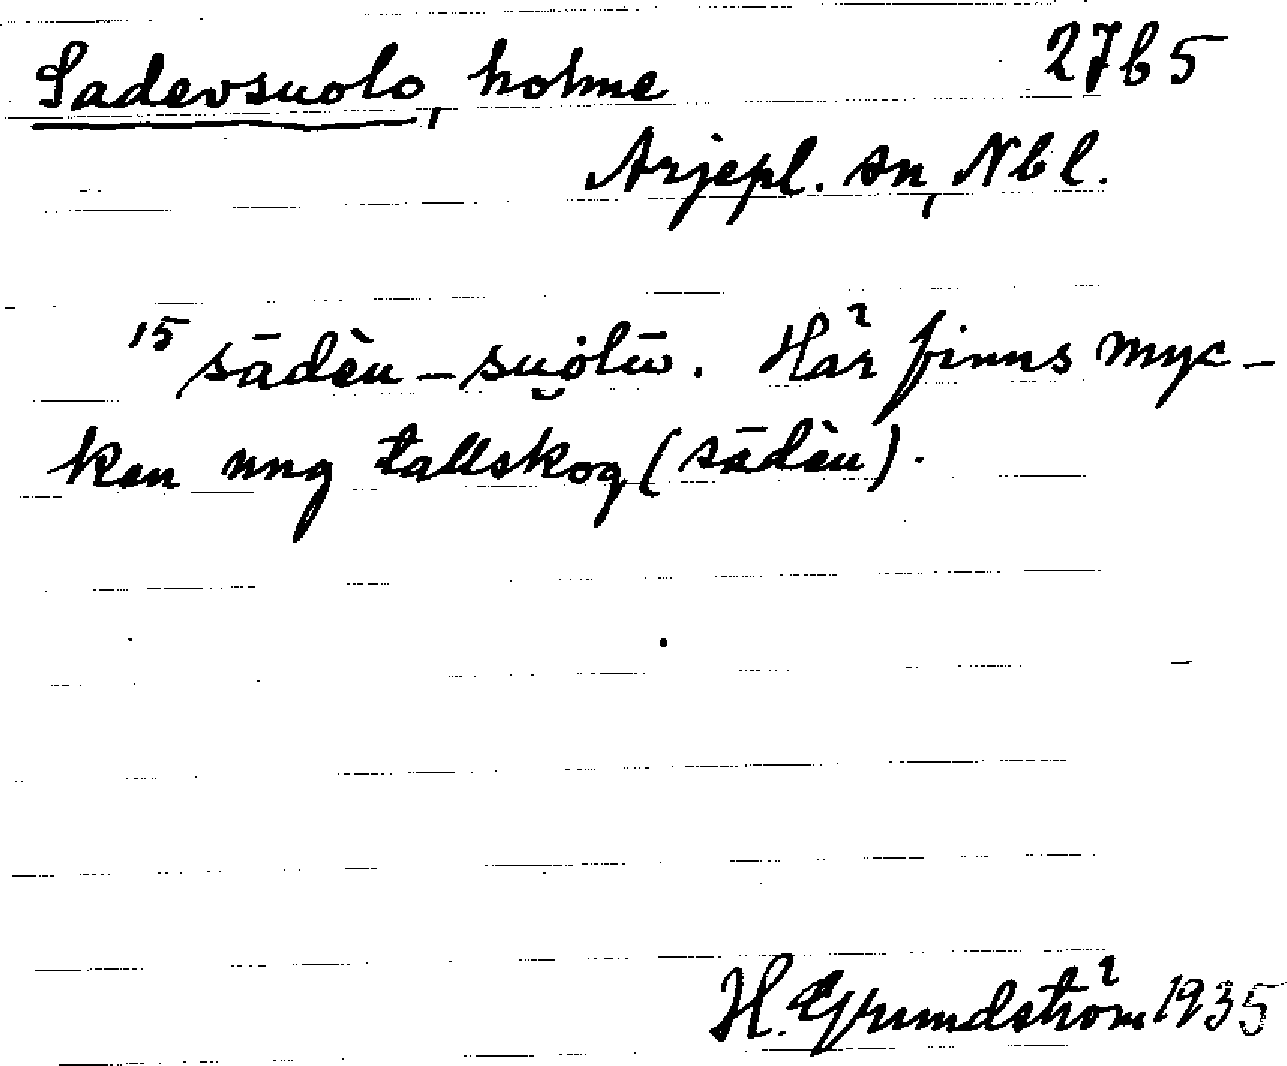 Sadevsuolo, holme 27b5
Arjepl. sn, Nbl.
15 sādèu̇ - su̮ȯlū. Här finns myc-
ken ung tallskog (sādèu).
H. Grundström 1935